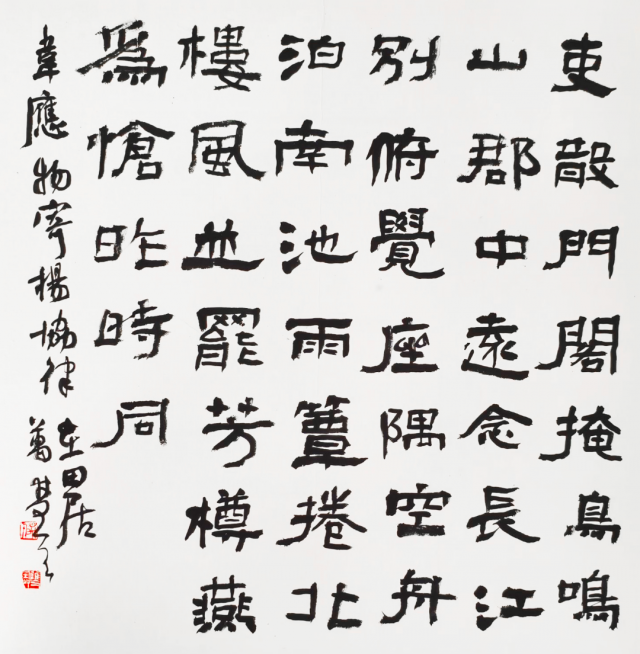 吏散門閣掩鳥鳴
山郡中遠念長江
別俯覺座隅空舟
泊南池雨簟捲北
樓風並罷芳樽燕
爲愴昨時同
韋應物寄楊協律
在田居
萬